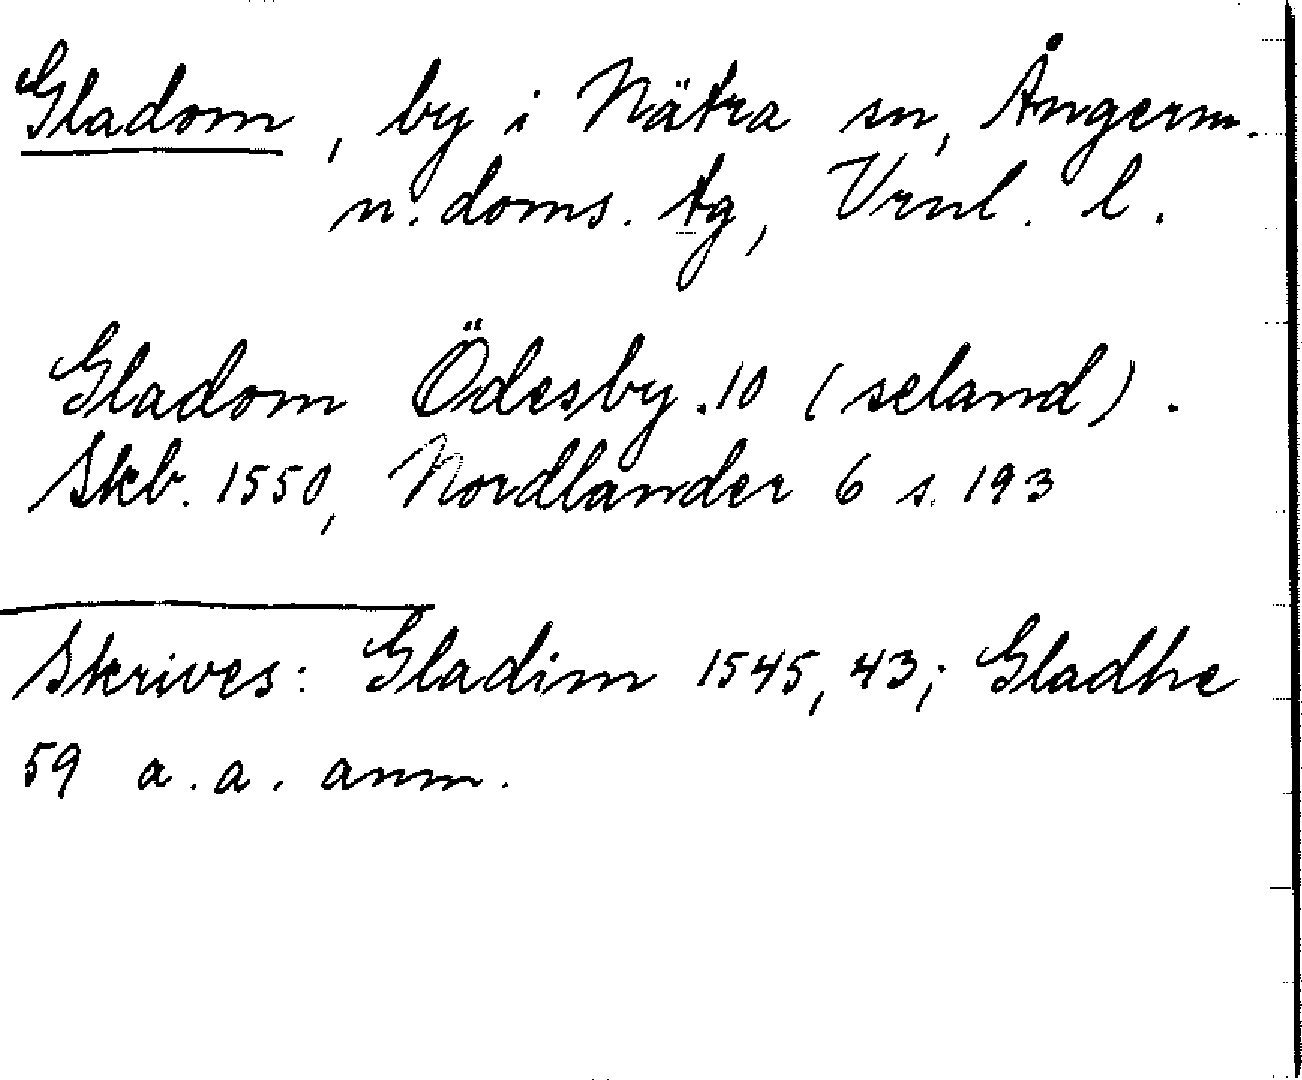 Gladom, by i Nätra sn, Ångerm.
n. doms. tg, Vrnl. l.
Gladom Ödesby. 10 (seland).
Skb. 1550, Nordlander 6 s. 193
Skrives: Gladim 1545, 43; Gladhe
59 a. a. anm.